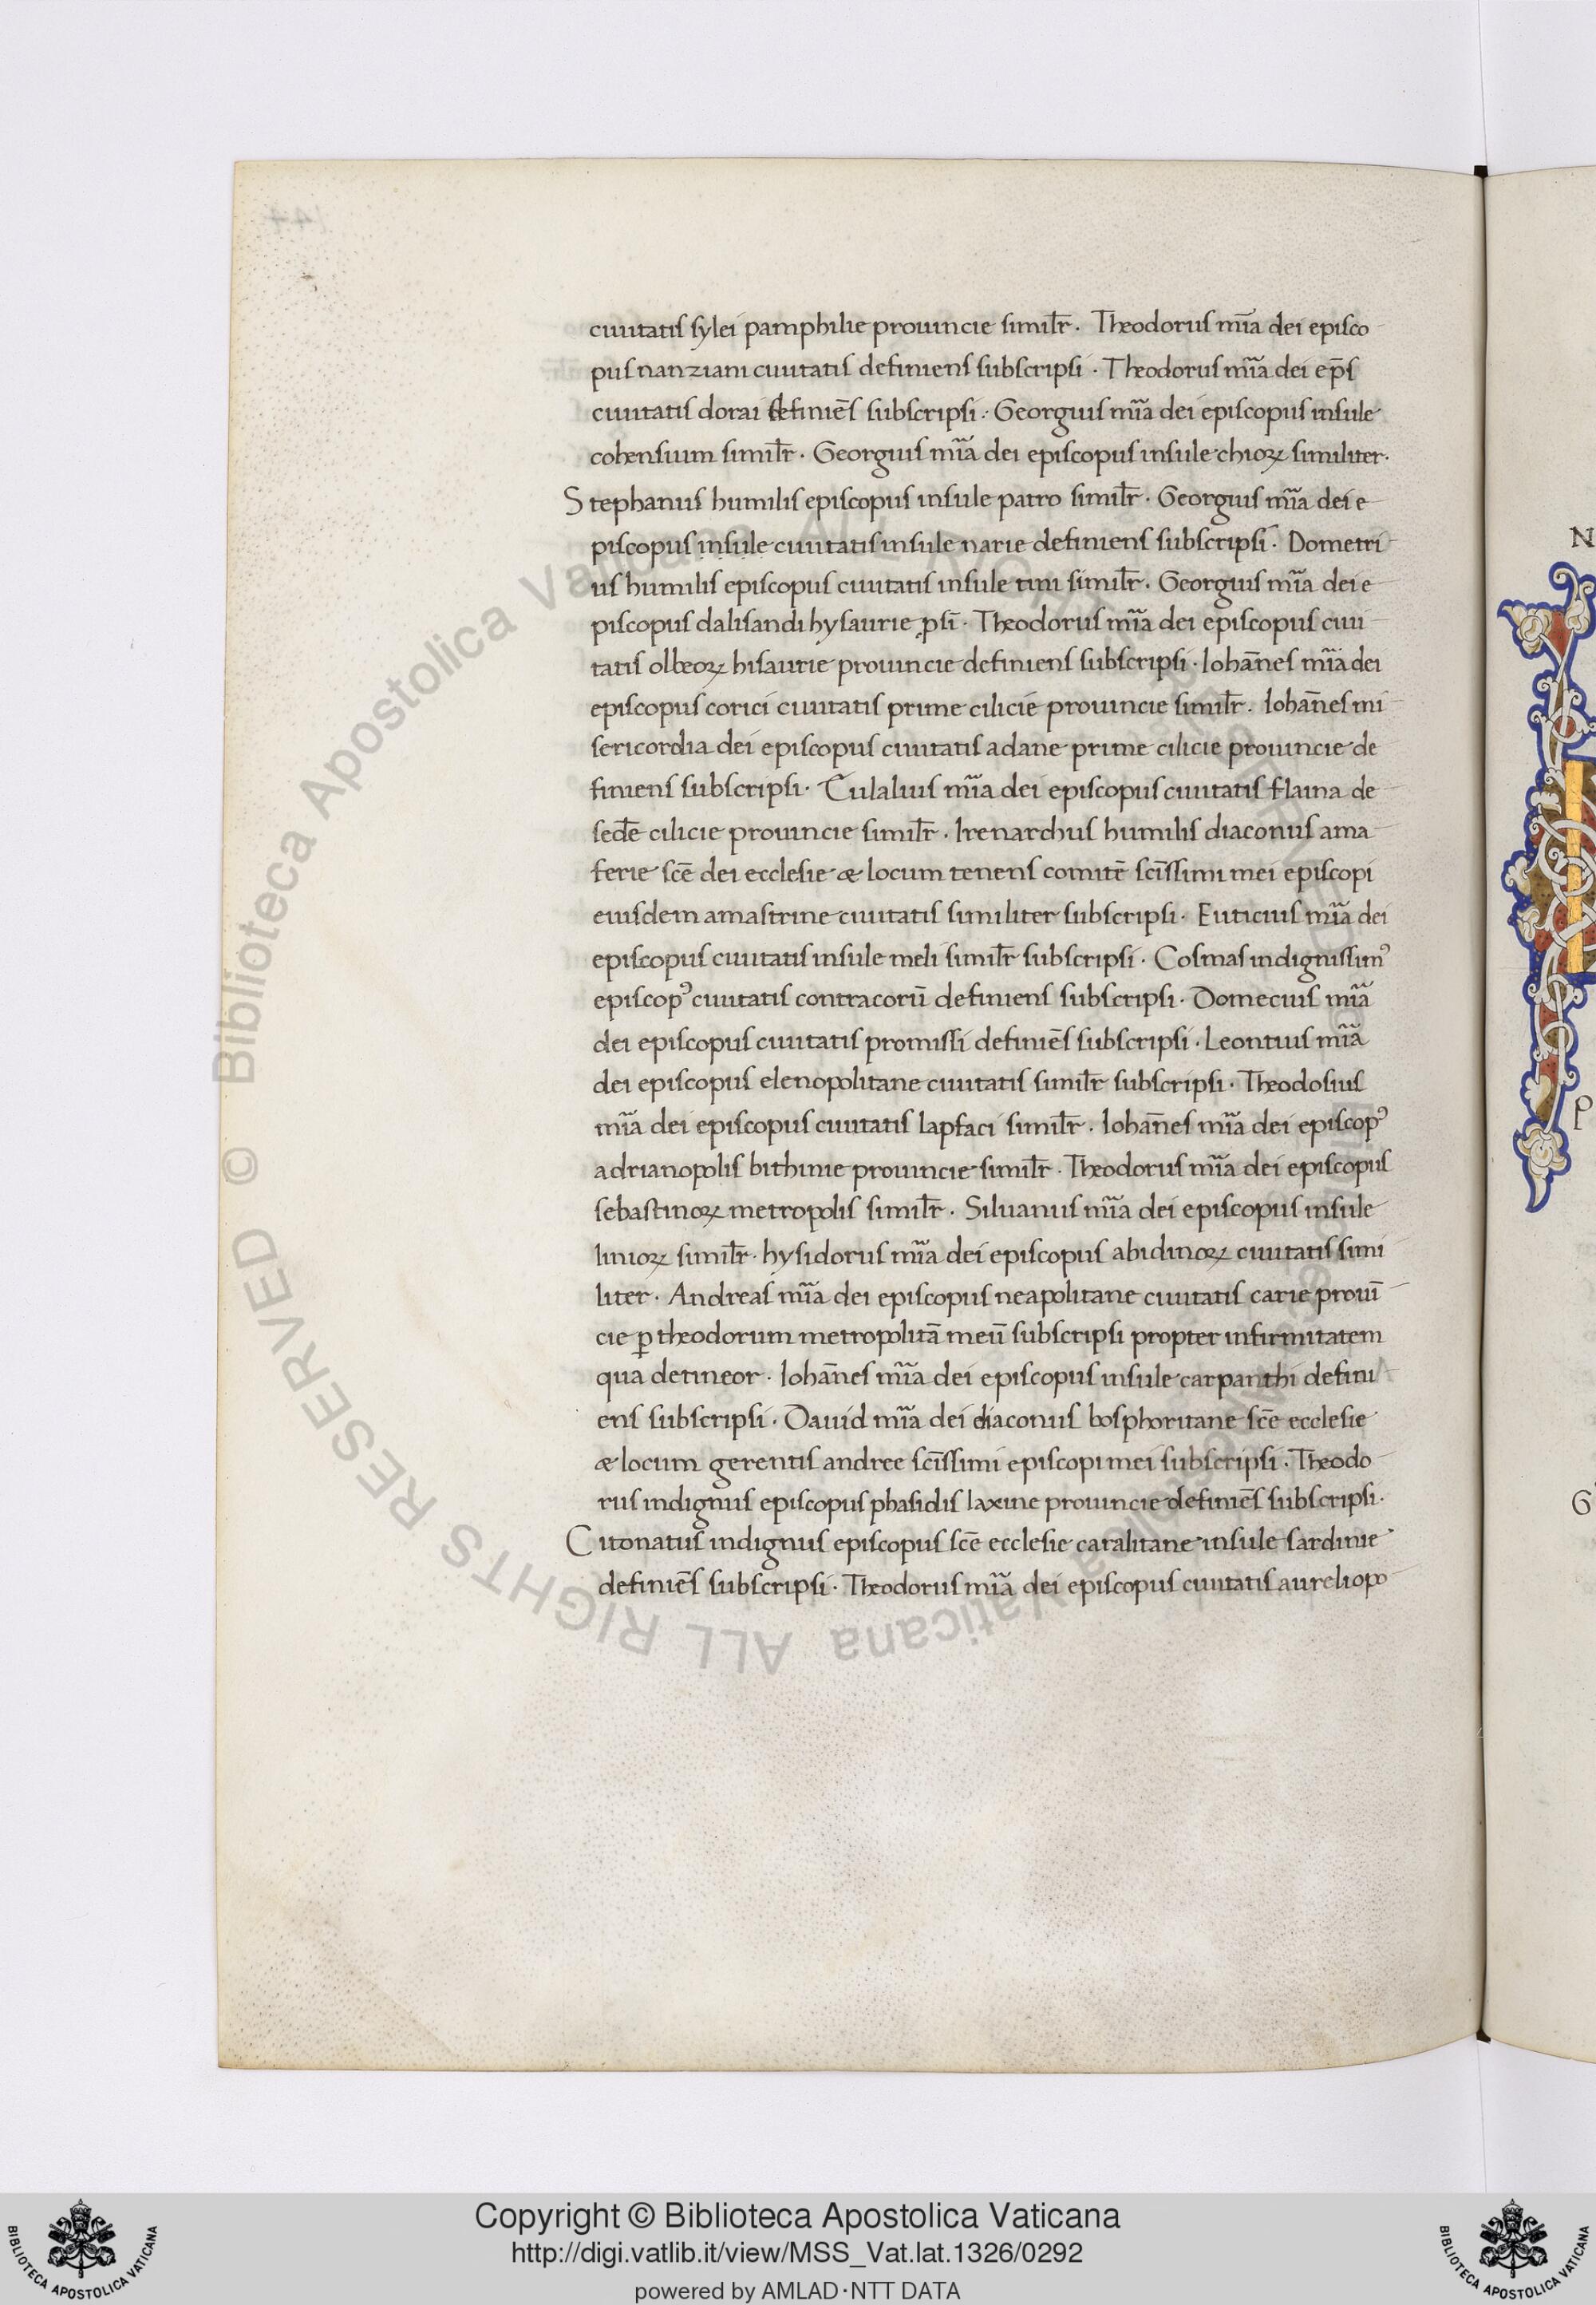 ciuitatis sylei pamphilie prouincie simil̄r. Theodorus m̄ia dei episco
pus nanziani ciuitatis definiens subscripsi. Theodorus m̄ia dei ep̄s
ciuitatis dorai definiēs subscripsi. Georgius m̄ia dei episcopus insule
cohensium simil̄r. Georgius m̄ia dei episcopus insule chioꝝ similiter.
Stephanus humilis episcopus insule patro simil̄r. Georgius m̄ia dei e
piscopus insule ciuitatis insule narie definiens subscripsi. Dometri
us humilis episcopus ciuitatis insule tini simil̄r. Georgius m̄ia dei e
piscopus dalisandi hysaurie psi. Theodorus m̄ia dei episcopus ciui
tatis olbeoꝝ hisaurie prouincie definiens subscripsi. Iohān̄es m̄ia dei
episcopus corici ciuitatis prime cilicie prouincie simil̄r. Iohān̄es mi
sericordia dei episcopus ciuitatis adane prime cilicie prouincie de
finiens subscripsi. Eulalius m̄ia dei episcopus ciuitatis flaina de
sedē cilicie prouincie simil̄r. Irenarchus humilis diaconus ama
ferie scē dei ecclesie æ locum tenens comitē sc̄issimi mei episcopi
eiusdem amastrine ciuitatis similiter subscripsi. Euticius m̄ia dei
episcopus ciuitatis insule meli simil̄r subscripsi. Cosmas indignissimꝰ
episcopꝰ ciuitatis contracorū definiens subscripsi. Domecius m̄ia
dei episcopus ciuitatis promissi definiēs subscripsi. Leontius m̄ia
dei episcopus elenopolitane ciuitatis simil̄r subscripsi. Theodosius
m̄ia dei episcopus ciuitatis lapsaci simil̄r. Iohān̄es m̄ia dei episcopꝰ
adrianopolis bithinie prouincie simil̄r. Theodorus m̄ia dei episcopus
sebastinoꝝ metropolis simil̄r. Siluanus m̄ia dei episcopus insule
linioꝝ simil̄r. hysidorus m̄ia dei episcopus abidinoꝝ ciuitatis simi
liter. Andreas m̄ia dei episcopus neapolitane ciuitatis carie prouī
cie ꝑ theodorum metropolitā meū subscripsi propter infirmitatem
qua detineor. Iohān̄es m̄ia dei episcopus insule carpanthi defini
ens subscripsi. Dauid m̄ia dei diaconus bosphoritane scē ecclesie
æ locum gerentis andree sc̄issimi episcopi mei subscripsi. Theodo
rus indignus episcopus phasidis laxine prouincie definiēs subscripsi.
Citonatus indignus episcopus scē ecclesie caralitane insule sardinie
definiēs subscripsi. Theodorus m̄ia dei episcopus ciuitatis aureliopo
N
P
G
© Biblioteca Apostolica Vaticana ALL RIGHTS RESERVED © Biblioteca Apostolica Vaticana ALL RIGHTS RESERVED
Copyright © Biblioteca Apostolica Vaticana
http://digi.vatlib.it/view/MSS_Vat.lat.1326/0292
powered by AMLAD·NTT DATA
BIBLIOTECA APOSTOLICA VATICANA
BIBLIOTECA APOSTOLICA VATICANA